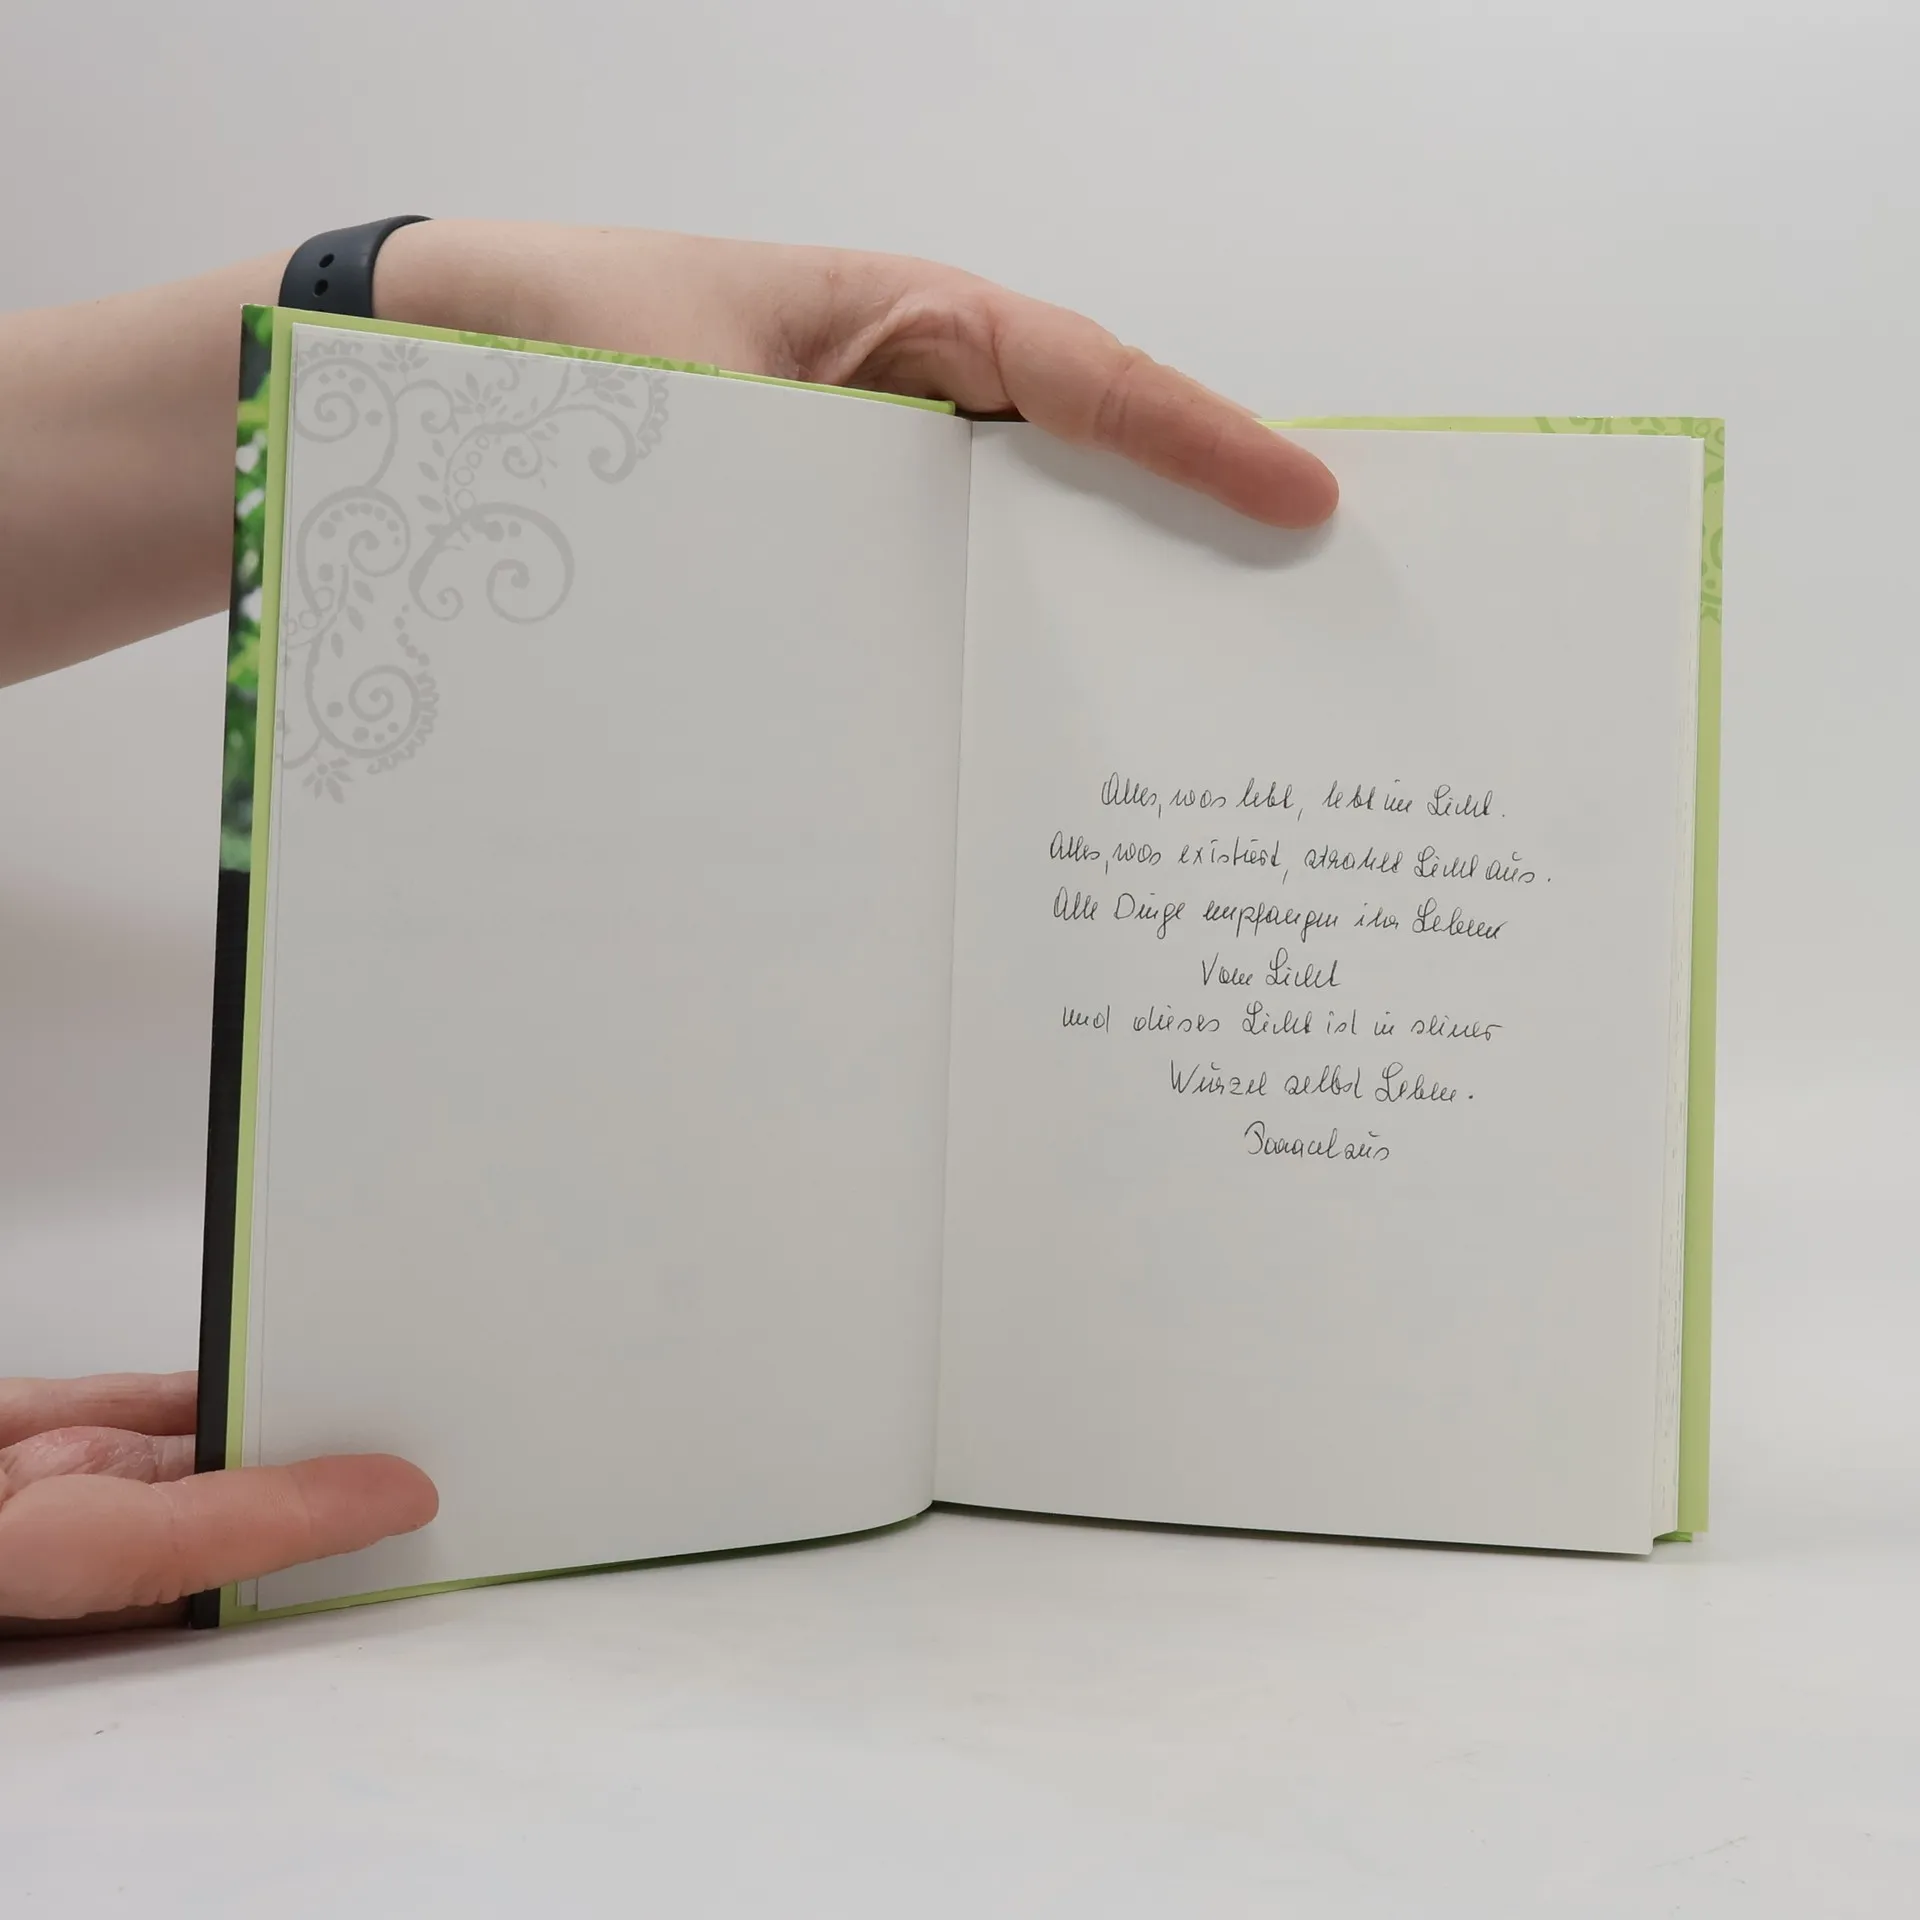 Alles, was lebt, lebt im Licht.
Alles, was existiert, strahlt Licht aus.
Alle Dinge empfangen ihr Leben
vom Licht
und dieses Licht ist in seiner
Wurzel selbst Leben.
Paracelsus